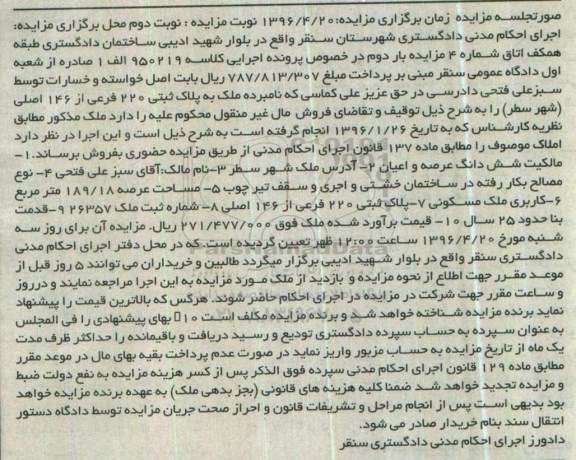 صورتجلسه مزایده  زمان برگزاری مزایده:۱۳۹۶/۴/۲۰ نوبت مزایده : نوبت دوم محل برگزاری مزایده:
اجرای احکام مدنی دادگستری شهرستان سنقر واقع در بلوار شهید ادیبی ساختمان دادگستری طبقه
همکف اتاق شماره ۴ مزایده بار دوم در خصوص پرونده اجرایی کلاسه ۹۵۰۲۱۹ الف ۱ صادره از شعبه
اول دادگاه عمومی سنقر مبنی بر پرداخت مبلغ ۷۸۷/۸۱۳/۳۰۷ ریال بابت اصل خواسته و خسارات توسط
سبزعلی فتحی دادرسی در حق عزیز علی کماسی که نامبرده ملک به پلاک ثبتی ۲۲۰ فرعی از ۱۴۶ اصلی
(شهر سطر) را به شرح ذیل توقیف و تقاضای فروش مال غیر منقول محکوم علیه را دارد ملک مذکور مطابق
نظریه کارشناس که به تاریخ ۱۳۹۶/۱/۲۶ انجام گرفته است به شرح ذیل است و این اجرا در نظر دارد
املاک موصوف را مطابق ماده ۱۳۷ قانون اجرای احکام مدنی از طریق مزایده حضوری بفروش برساند.۱-
مالکیت شش دانگ عرصه و اعیان ۲- آدرس ملک شهر سطر ۳-نام مالک:آقای سبز علی فتحی ۴- نوع
مصالح بکار رفته در ساختمان خشتی و اجری و سقف تیر چوب ۵- مساحت عرصه ۱۸۹/۱۸ متر مربع
۶-کاربری ملک مسکونی ۷-پلاک ثبتی ۲۲۰ فرعی از ۱۴۶ اصلی ۸- شماره ثبت ملک ۲۶۳۵۷ ۹-قدمت
بنا حدود ۲۵ سال ۱۰- قیمت برآورد شده ملک فوق ۲۷۱/۴۷۷/۰۰۰ ریال. مزایده آن برای روز سه
شنبه مورخ ۱۳۹۶/۴/۲۰ ساعت ۱۲:۰۰ ظهر تعیین گردیده است. که در محل دفتر اجرای احکام مدنی
دادگستری سنقر واقع در بلوار شهید ادیبی برگزار میگردد طالبین و خریداران می توانند ۵ روز قبل از
موعد مقرر جهت اطلاع از نحوه مزایده و بازدید از ملک مورد مزایده به این اجرا مراجعه نمایند و درروز
و ساعت مقرر جهت شرکت در مزایده در اجرای احکام حاضر شوند. هرگس که بالاترین قیمت را پیشنهاد
نماید برنده مزایده شناخته خواهد شد و برنده مزایده مکلف است ۱۰ بهای پیشنهادی را فی المجلس
به عنوان سپرده به حساب سپرده دادگستری تودیع و رسید دریافت و باقیمانده را حداکثر ظرف مدت
یک ماه از تاریخ مزایده به حساب مزبور واریز نماید در صورت عدم پرداخت بقیه بهای مال در موعد مقرر
مطابق ماده ۱۲۹ قانون اجرای احکام مدنی سپرده فوق الذکر پس از کسر هزینه مزایده به نفع دولت ضبط
و مزایده تجدید خواهد شد ضمنا کلیه هزینه های قانونی (بجز بدهی ملک) به عهده برنده مزایده خواهد
بود بدیهی است پس از انجام مراحل و تشریفات قانون و احراز صحت جریان مزایده توسط دادگاه دستور
انتقال سند بنام خریدار صادر می شود.
دادورز اجرای احکام مدنی دادگستری سنقر